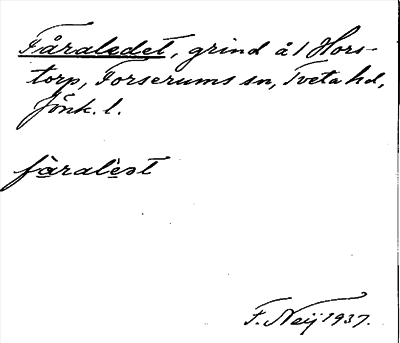 Fåraledet, grind å 1 Hors-
torp, Forserums sn, Tveta hd,
Jönk. l.
fåralèst
F. Neij 1937.